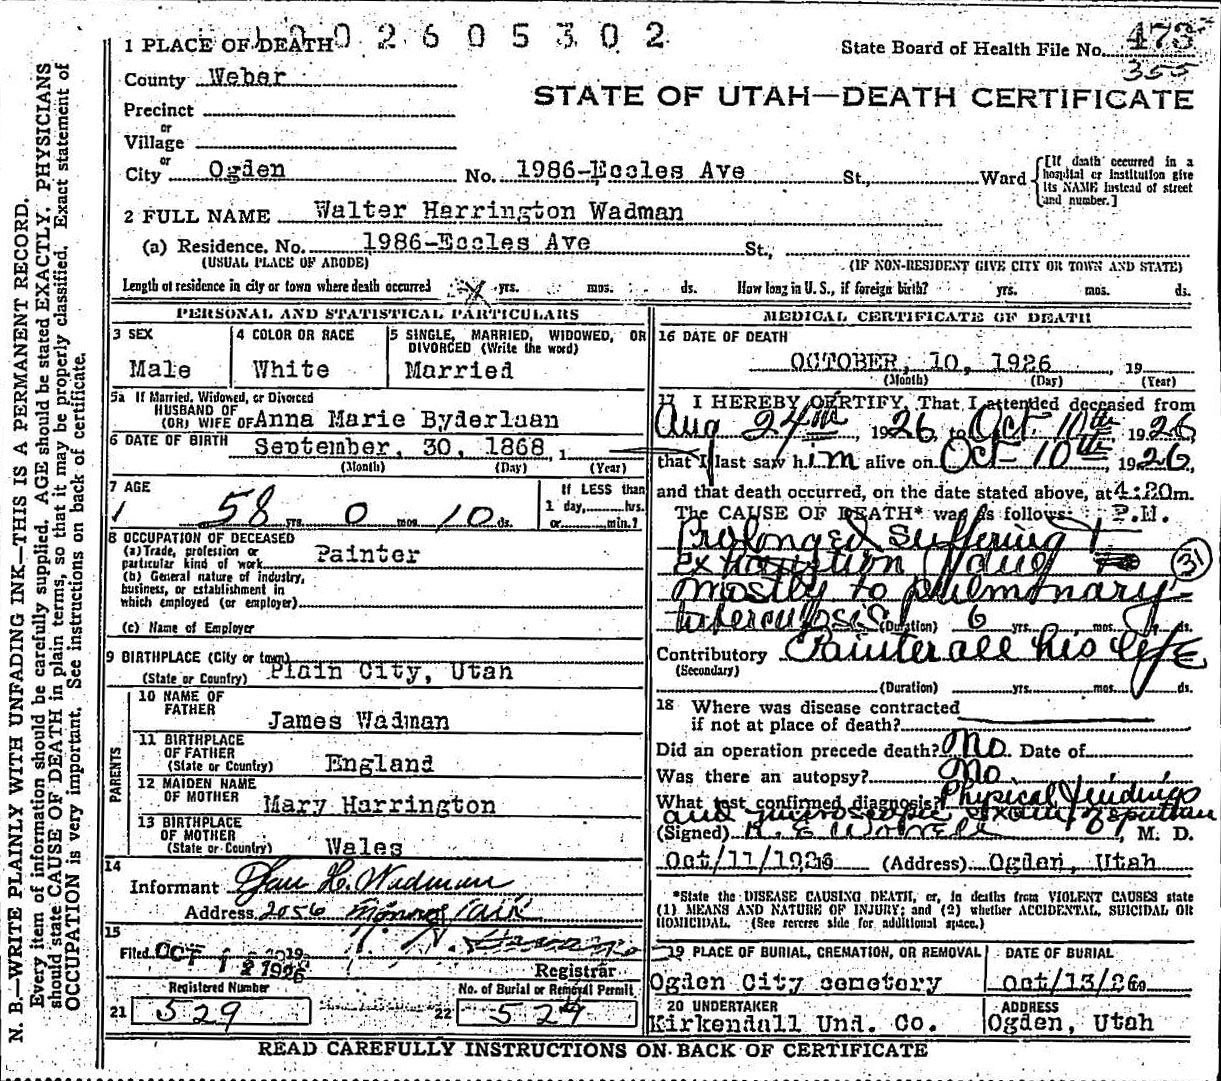 1 0 0 2 6 0 5 3 0 2
1 PLACE OF DEATH
State Board of Health File No. 473
355
County Weber
STATE OF UTAH—DEATH CERTIFICATE
Precinct
or
Village
or
City Ogden No. 1986-Eccles Ave St., Ward
[If death occurred in a hospital or institution give its NAME instead of street and number.]
2 FULL NAME Walter Harrington Wadman
(a) Residence. No. 1986-Eccles Ave St.,
(USUAL PLACE OF ABODE) (IF NON-RESIDENT GIVE CITY OR TOWN AND STATE)
Length of residence in city or town where death occurred yrs. mos. ds. How long in U. S., if foreign birth? yrs. mos. ds.
PERSONAL AND STATISTICAL PARTICULARS
3 SEX
Male
4 COLOR OR RACE
White
5 SINGLE, MARRIED, WIDOWED, OR
DIVORCED (Write the word)
Married
5a If Married, Widowed, or Divorced
HUSBAND OF
(OR) WIFE OF Anna Marie Byderlaan
6 DATE OF BIRTH September, 30, 1868, 1
(Month) (Day) (Year)
7 AGE
58 yrs. 0 mos. 10 ds.
If LESS than
1 day, hrs.
or min.?
8 OCCUPATION OF DECEASED
(a) Trade, profession or
particular kind of work Painter
(b) General nature of industry,
business, or establishment in
which employed (or employer)
(c) Name of Employer
9 BIRTHPLACE (City or town)
(State or Country) Plain City, Utah
PARENTS
10 NAME OF
FATHER James Wadman
11 BIRTHPLACE
OF FATHER
(State or Country) England
12 MAIDEN NAME
OF MOTHER Mary Harrington
13 BIRTHPLACE
OF MOTHER
(State or Country) Wales
14
Informant H. Wadman
Address 2056
15
Filed OCT 12 1926 19
Registrar
Registered Number
21 529
No. of Burial or Removal Permit
22 524
MEDICAL CERTIFICATE OF DEATH
16 DATE OF DEATH
OCTOBER, 10, 1926, 19
(Month) (Day) (Year)
17 I HEREBY CERTIFY, That I attended deceased from
Aug 24th, 1926, to Oct 10th 1926
that I last saw him alive on Oct 10th, 1926,
and that death occurred, on the date stated above, at 4:20m.
The CAUSE OF DEATH* was as follows: P.M.
Prolonged suffering +
Exhaustion due to
31
mostly to pulmonary
tuberculosis (Duration) 6 yrs. mos. ds.
Contributory Painter all his life
(Secondary)
(Duration) yrs. mos. ds.
18 Where was disease contracted
if not at place of death?
Did an operation precede death? No. Date of
Was there an autopsy? No
What test confirmed diagnosis? Physical findings
and microscopic exam of sputum
(Signed) M. D.
Oct/11/1926 (Address) Ogden, Utah
*State the DISEASE CAUSING DEATH, or, in deaths from VIOLENT CAUSES state
(1) MEANS AND NATURE OF INJURY; and (2) whether ACCIDENTAL, SUICIDAL OR
HOMICIDAL. (See reverse side for additional space.)
19 PLACE OF BURIAL, CREMATION, OR REMOVAL
Ogden City cemetery
DATE OF BURIAL
Oct/13/26
20 UNDERTAKER
Kirkendall Und. Co.
ADDRESS
Ogden, Utah
READ CAREFULLY INSTRUCTIONS ON BACK OF CERTIFICATE
N. B.—WRITE PLAINLY WITH UNFADING INK—THIS IS A PERMANENT RECORD.
Every item of information should be carefully supplied. AGE should be stated EXACTLY. PHYSICIANS
should state CAUSE OF DEATH in plain terms, so that it may be properly classified. Exact statement of
OCCUPATION is very important. See instructions on back of certificate.